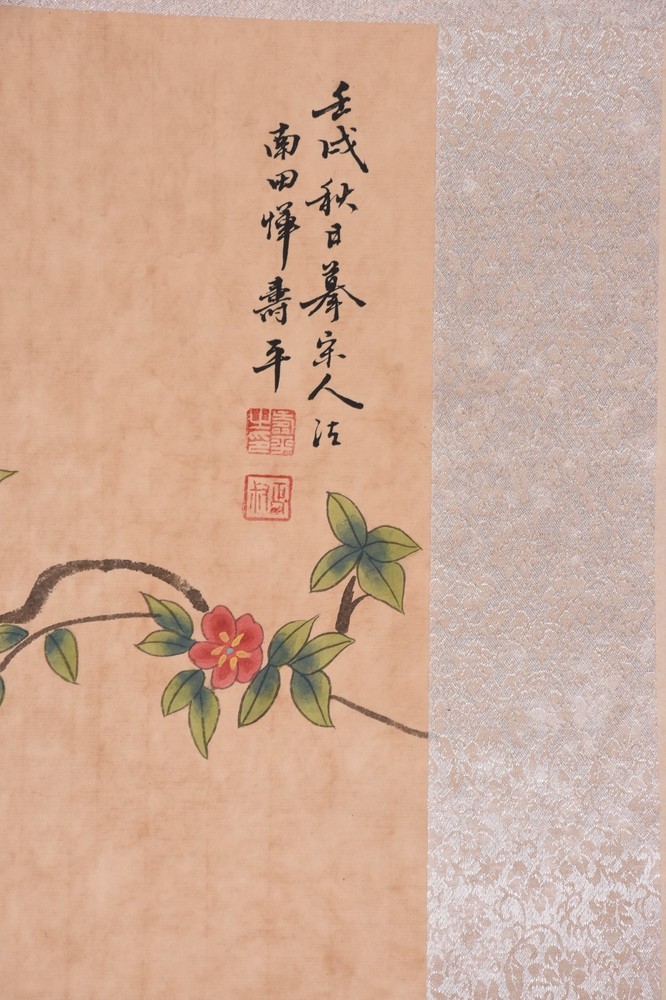 壬戌秋日摹宋人法
南田惲壽平